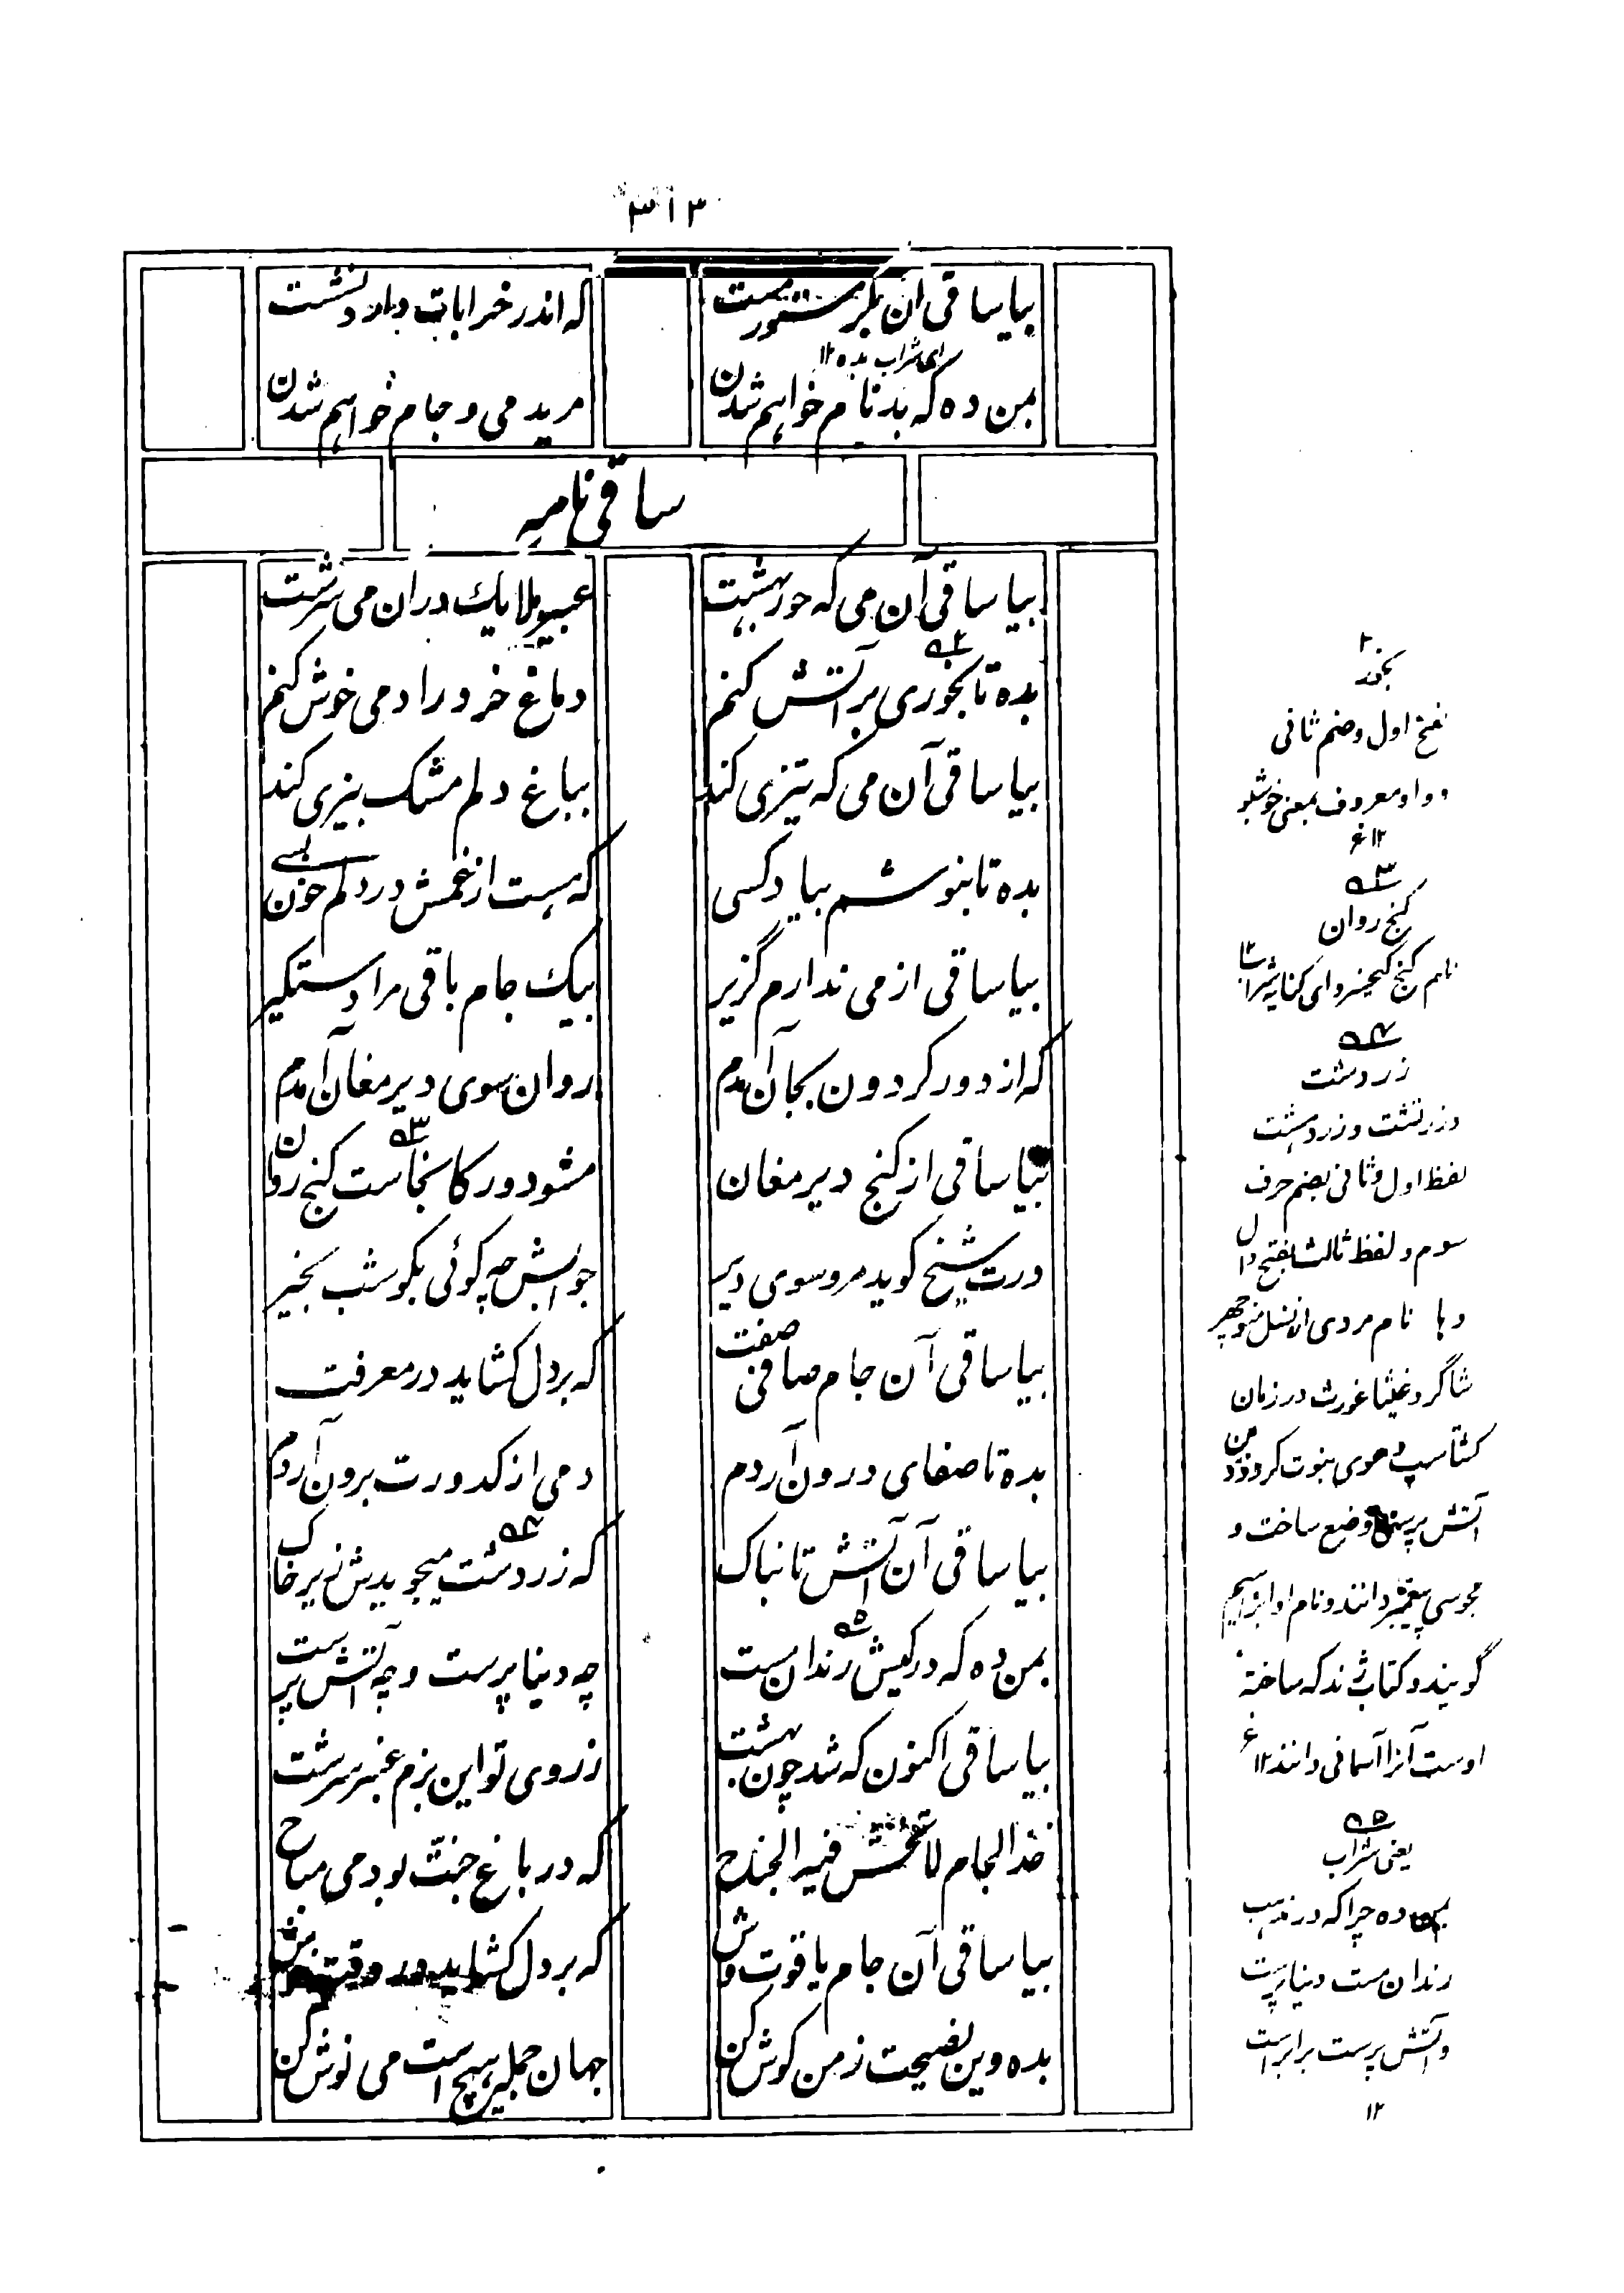 ۳۱۳
بیا ساقی آن بکر مستور مست
که اندر خرابات دارد نشست
ای شراب بده ۱۲
بمن ده که بدنام خواهم شدن
مرید می و جام خواهم شدن
ساقی نامه
بیا ساقی آن می که حور بهشت
عبیر ملایک دران می سرشت
بده تا بخوری بر آتش کنم
دماغ خرد را دمی خوش کنم
بیا ساقی آن می که تیزی کند
بباغ دلم مشک بیزی کند
بده تا بنوشم بیاد کسی
که هست از غمش در دلم خون بسی
بیا ساقی از می ندارم گزیر
بیک جام باقی مرا دستگیر
که از دور گردون بجان آمدم
روان سوی دیر مغان آمدم
بیا ساقی از کنج دیر مغان
مشو دور کانجاست گنج روان
ورت شیخ گوید مرو سوی دیر
جوابش چه گوئی بگو شب بخیر
بیا ساقی آن جام صافی صفت
که بر دل کشاید در معرفت
بده تا صفای درون آردم
دمی از کدورت برون آردم
بیا ساقی آن آتش تابناک
که زردشت میجویدش زیر خاک
بمن ده که در کیش رندان مست
چه دنیا پرست و چه آتش پرست
بیا ساقی اکنون که شد چون بهشت
ز روی تو این بزم عنبر سرشت
خذ الجام لا تخش فیه الجناح
که در باغ جنت بود می مباح
بیا ساقی آن جام یاقوت وش
که بر دل کشاید در وقت خوش
بده وین نصیحت ز من گوش کن
جهان جمله هیچ است می نوش کن
۲
بخور
بفتح اول و ضم ثانی
و واو معروف بمعنی خوشبو
۱۲ غ
۳
گنج روان
نام گنج کیخسرو ای کنایه شراب ۱۲
۴
زردشت
و زرتشت و زردهشت
لفظ اول و ثانی بضم حرف
سوم و لفظ ثالث بفتح دال
و ها نام مردی از نسل منوچهر
شاگرد فیثاغورث در زمان
گشتاسپ دعوی نبوت کرد و دین
آتش پرستی وضع ساخت و
مجوسی پیغمبر دانند و نام او ابراهیم
گویند و کتاب ژند که ساخته
اوست آنرا آسمانی دانند ۱۲ غ
۵
یعنی شراب
بمن ده چرا که در مذهب
رندان مست دنیا پرست
و آتش پرست برابر است
۱۲